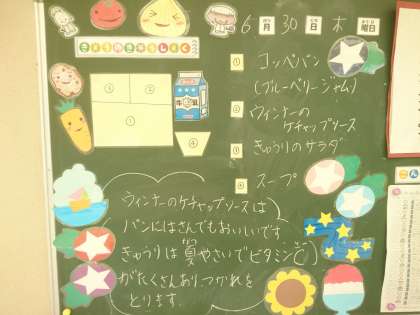 6月30日 木曜日
きょうのきゅうしょく
① コッペパン
(ブルーベリージャム)
② ウィンナーの
ケチャップソース
③ きゅうりのサラダ
④ スープ
牛乳
ウィンナーのケチャップソースは
パンにはさんでもおいしいです
きゅうりは夏やさいでビタミンC
がたくさんあり、つかれを
とります。